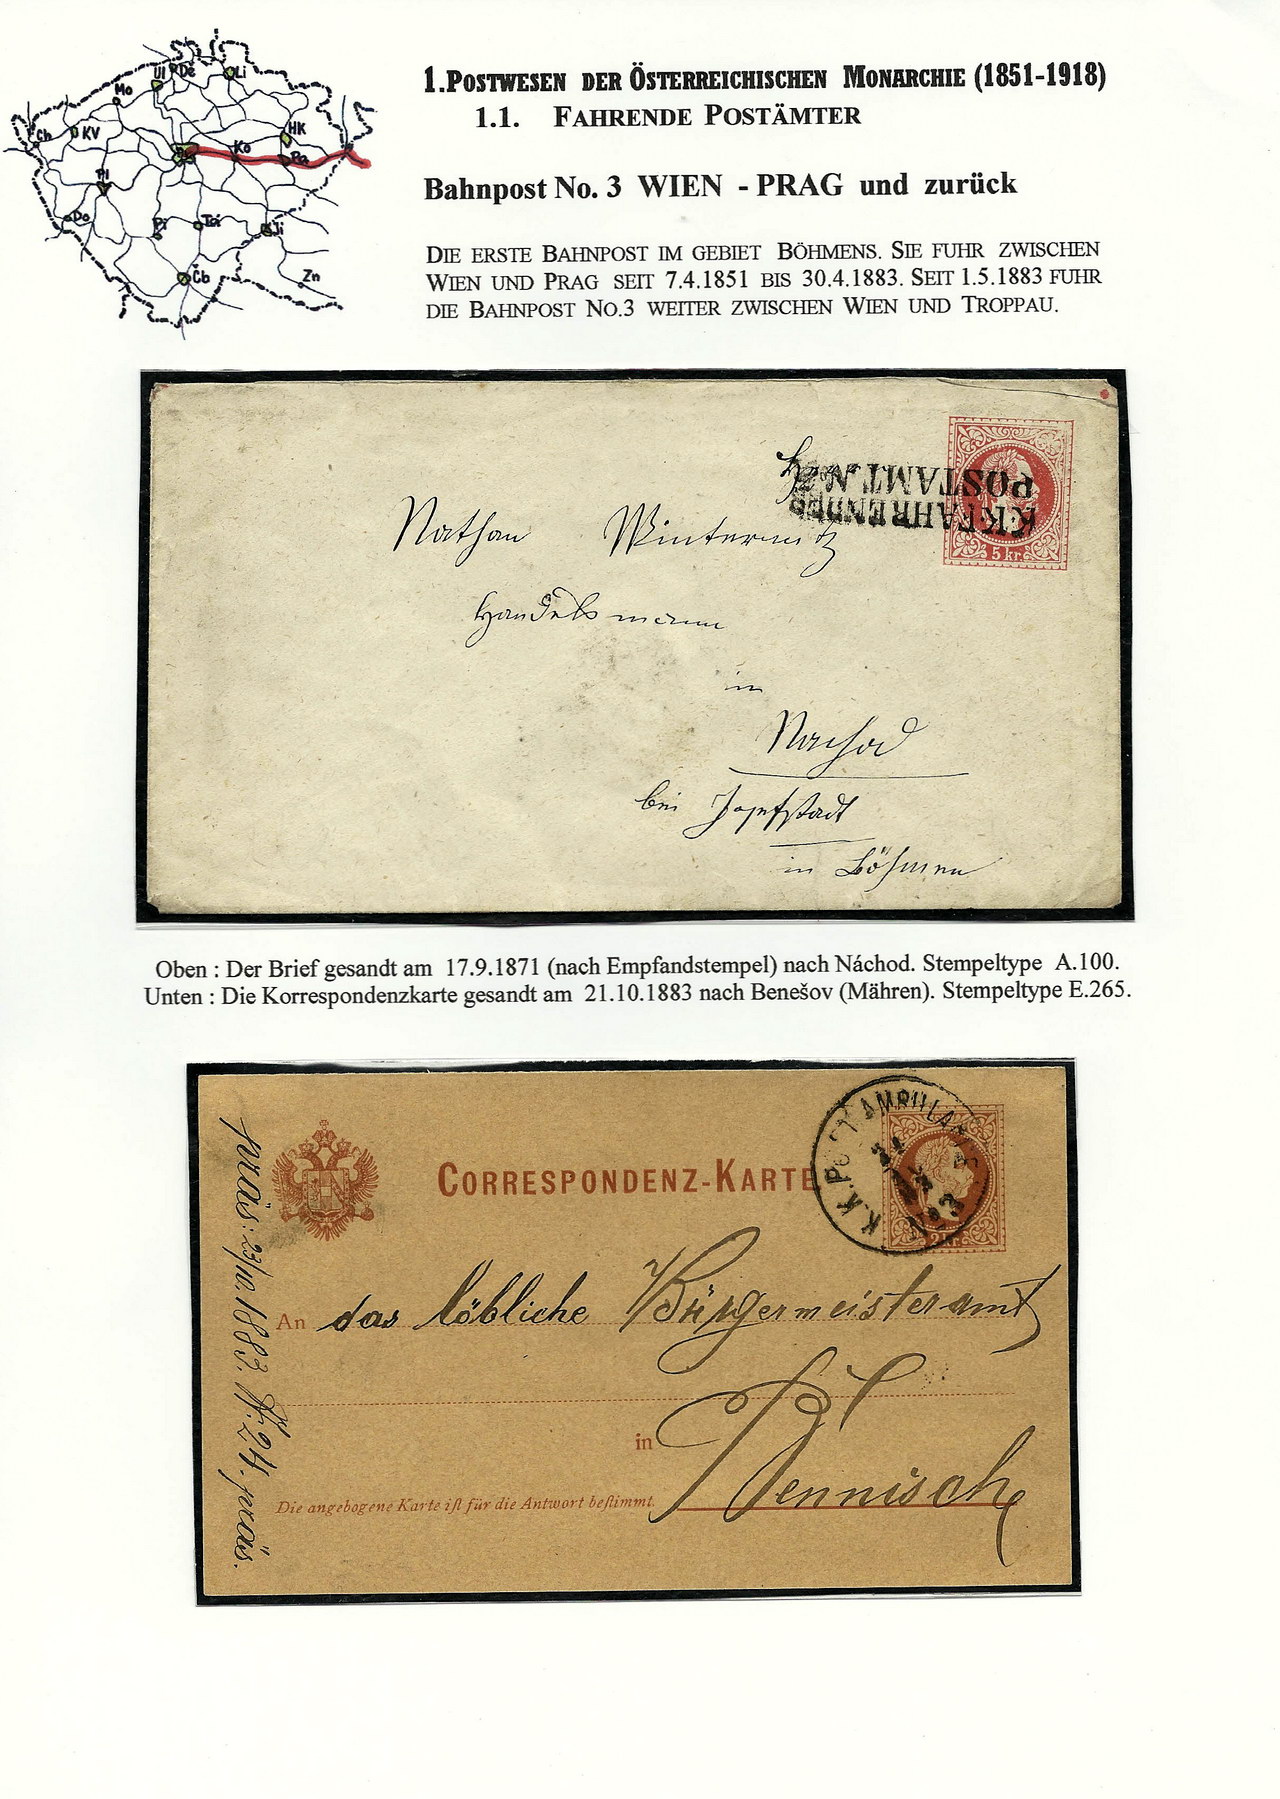 1.POSTWESEN DER ÖSTERREICHISCHEN MONARCHIE (1851-1918)
1.1. FAHRENDE POSTÄMTER
Bahnpost No. 3 WIEN - PRAG und zurück
DIE ERSTE BAHNPOST IM GEBIET BÖHMENS. SIE FUHR ZWISCHEN
WIEN UND PRAG SEIT 7.4.1851 BIS 30.4.1883. SEIT 1.5.1883 FUHR
DIE BAHNPOST NO.3 WEITER ZWISCHEN WIEN UND TROPPAU.
Ul Dě Li
Mo
Ch KV HK
Ko Pa
Pl
Do Pi Tá Ji
Čb Zn
K.K.FAHRENDES
POSTAMT No 3
5 kr.
Nathan Winternitz
Handelsmann
in
Nachod
bei Josefstadt
in Böhmen
Oben : Der Brief gesandt am 17.9.1871 (nach Empfandstempel) nach Náchod. Stempeltype A.100.
Unten : Die Korrespondenzkarte gesandt am 21.10.1883 nach Benešov (Mähren). Stempeltype E.265.
CORRESPONDENZ-KARTE
K.K.POST AMBULANCE
No 3
2 kr.
An das löbliche Bürgermeisteramt
in Bennisch
Die angebogene Karte ist für die Antwort bestimmt.
präs: 23/10.1883. präs.